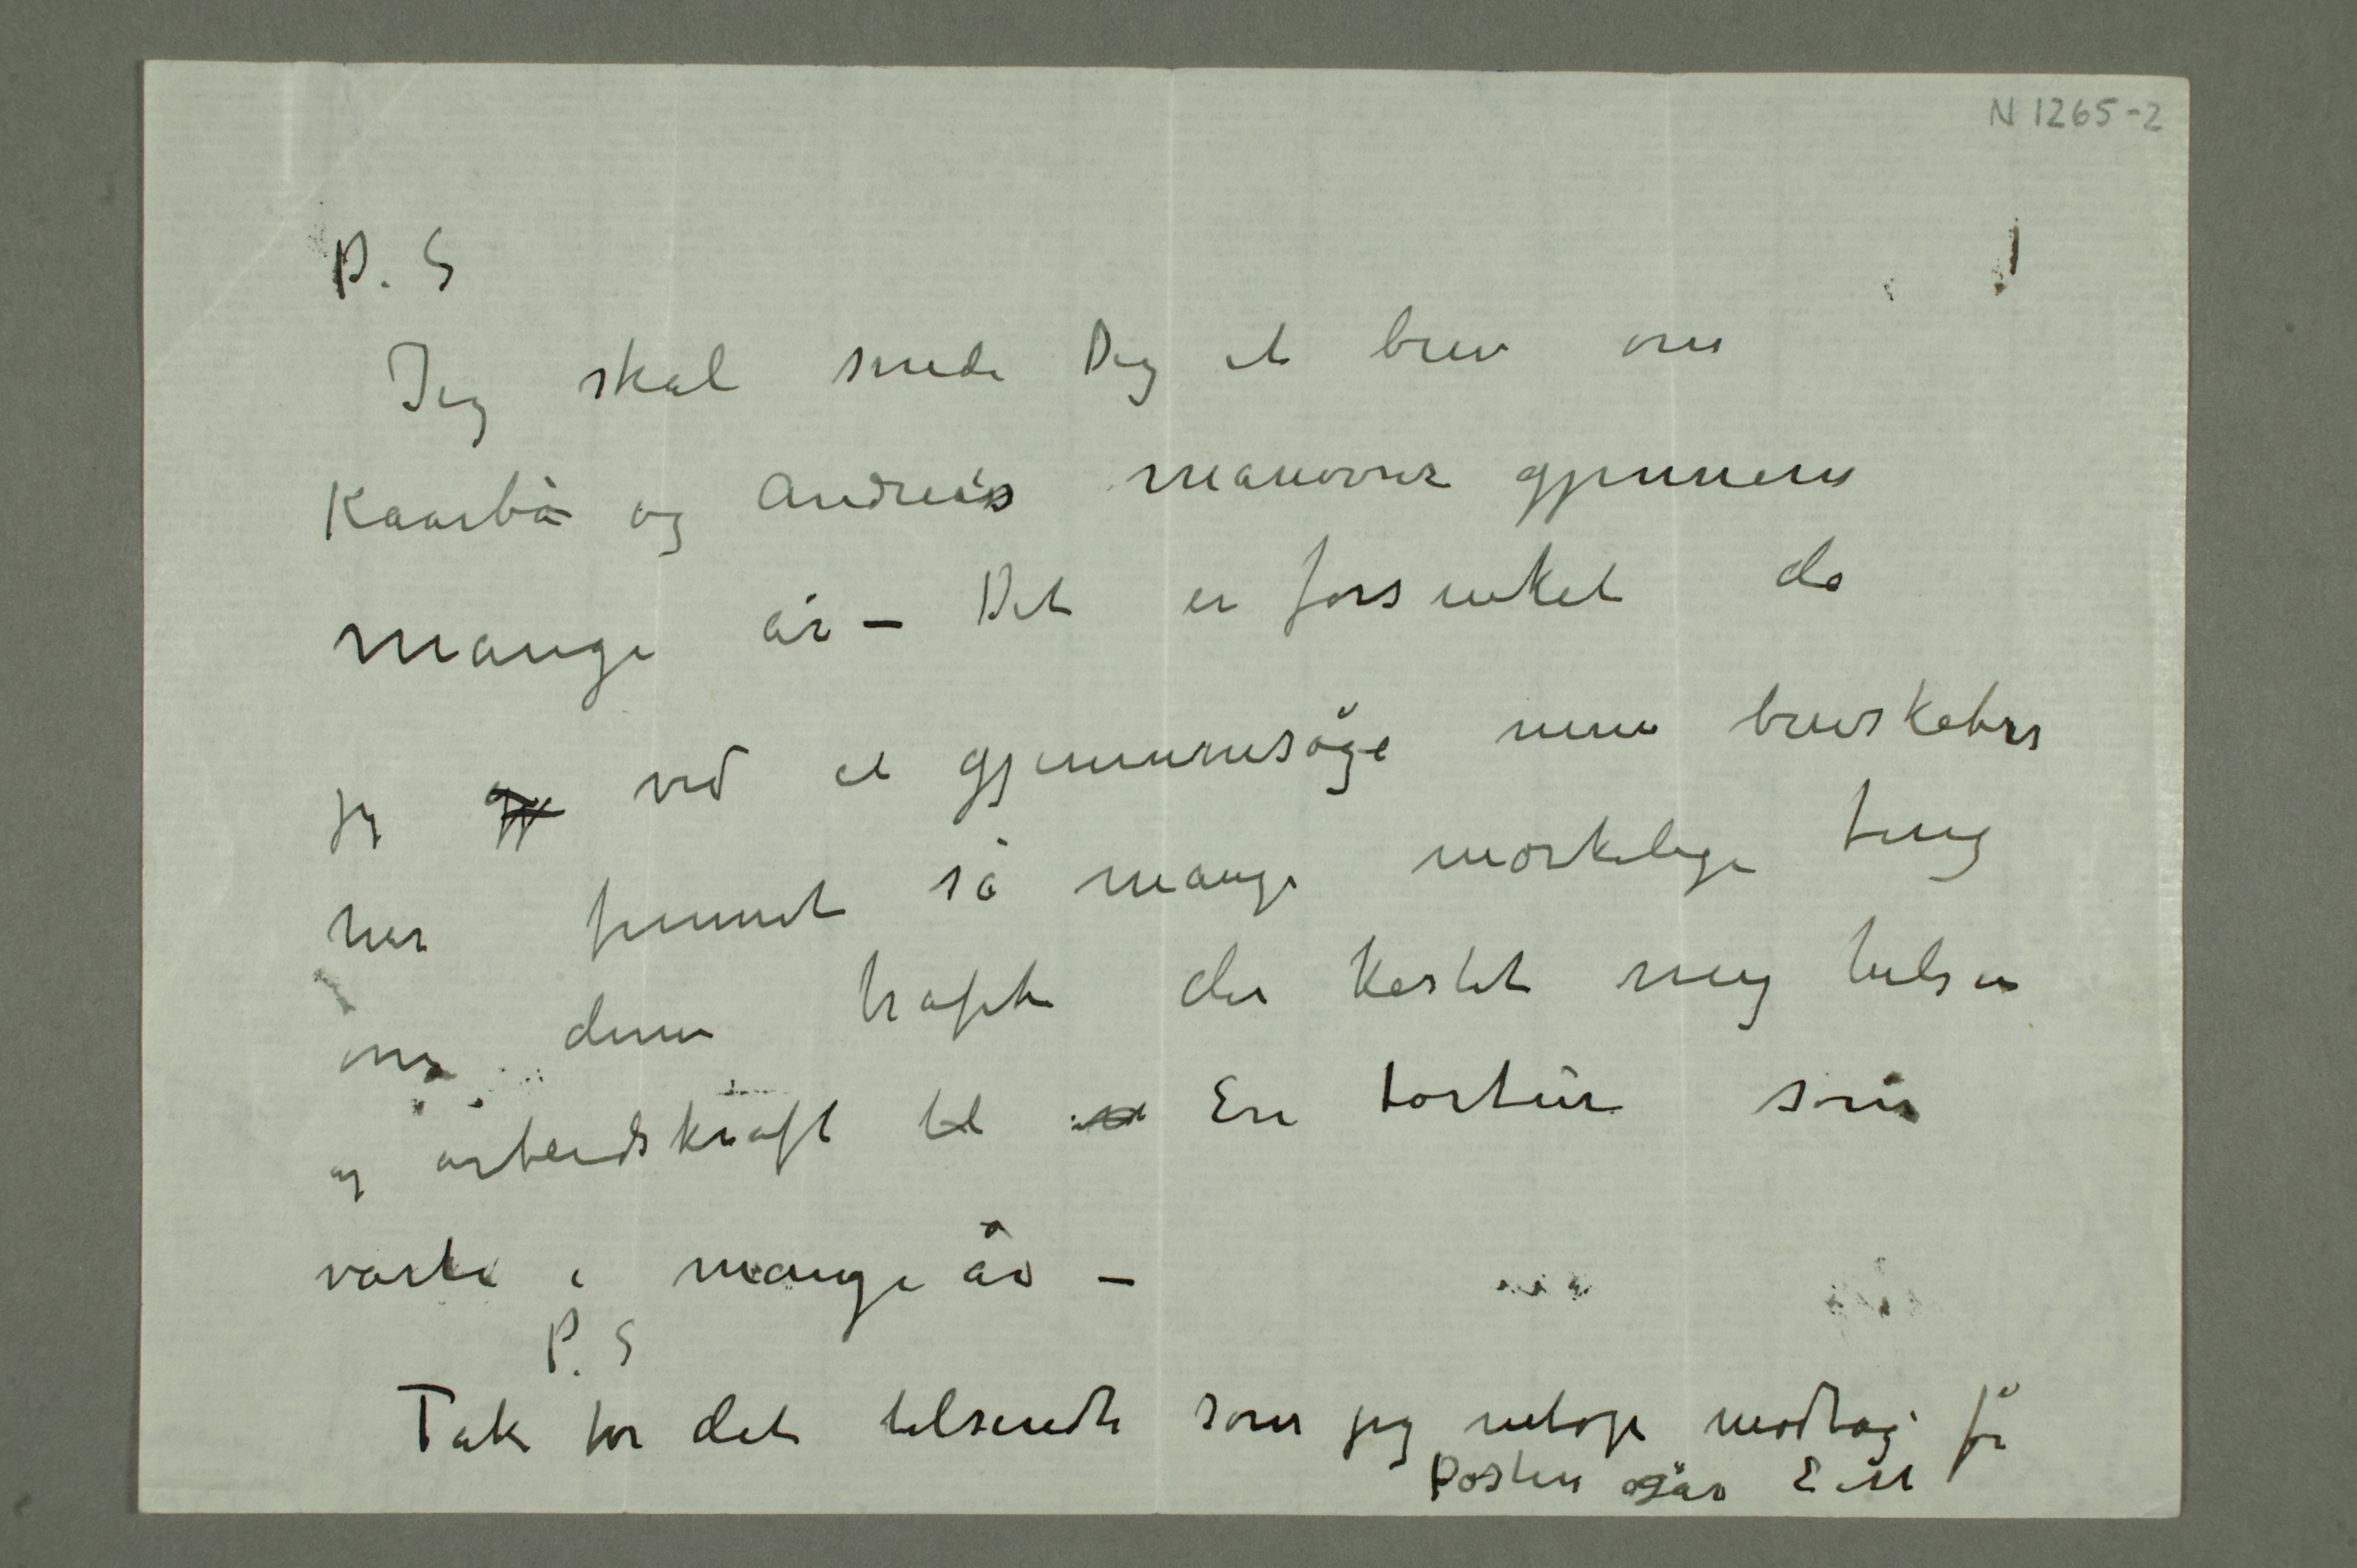 N 1265-2
P. S
Jeg skal sende Dig et brev om
Kaarbø og Andres manøvrer gjennem
mange år – Det er forsinket da
jeg ved at gjennemsøge mine brevskaber
har funnet så mange mærkelige ting
om denne trafik der kostet mig helsen
og arbeidskraft til En tortur som
varte i mange år –
P. S
Tak for det tilsendte som jeg netop modtog før
Posten går E M